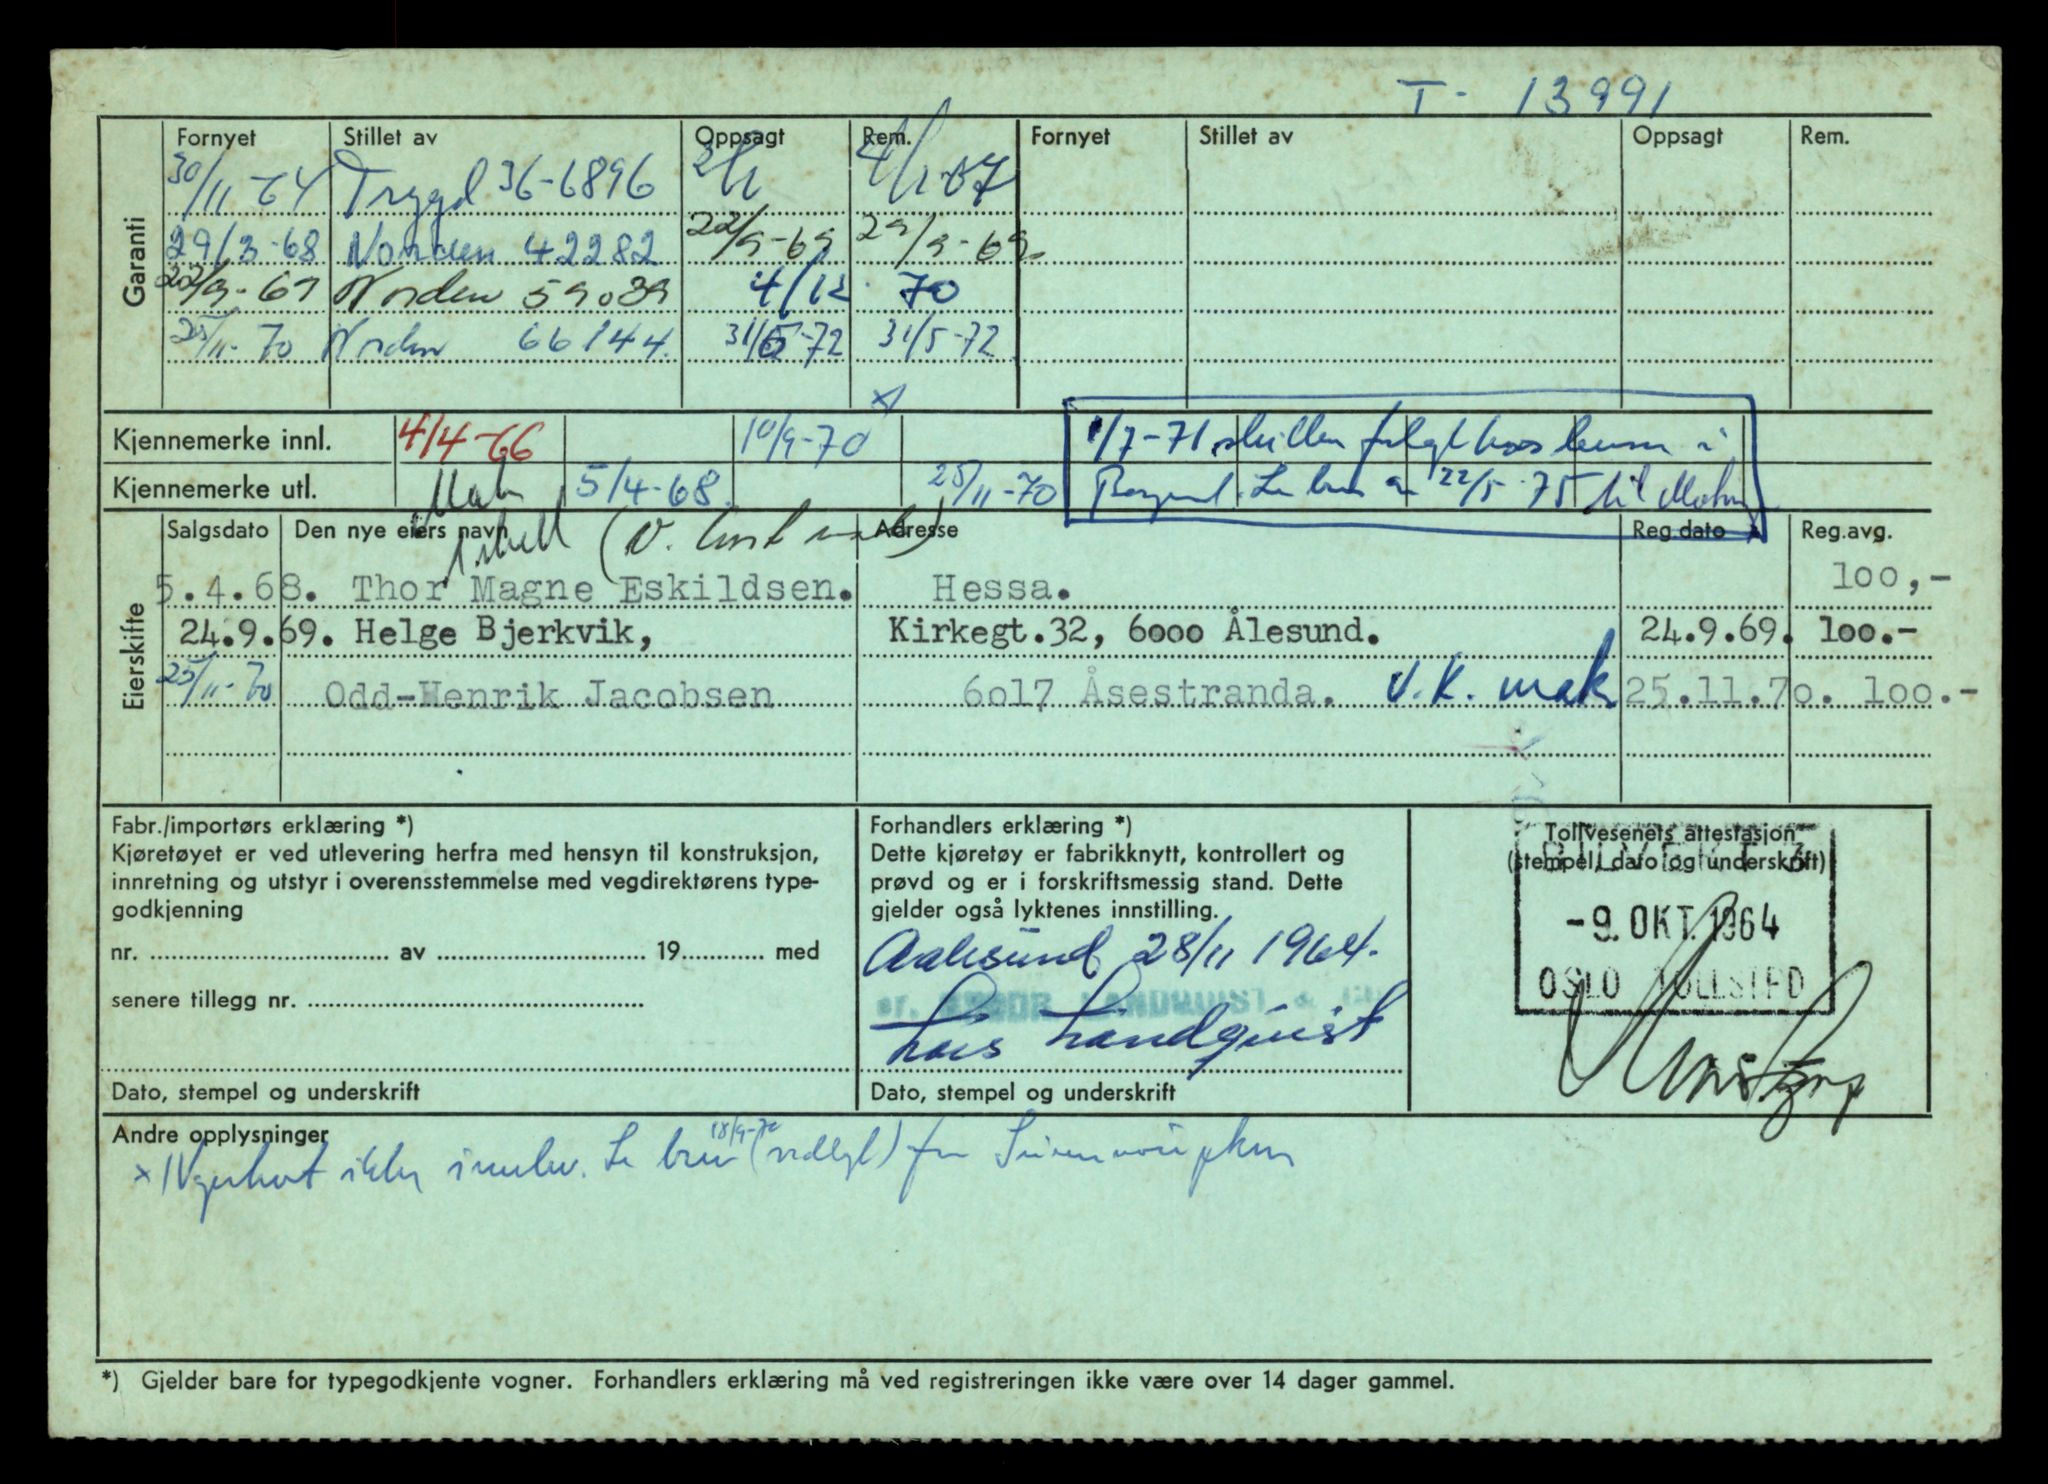 T - 13991
Fornyet Stillet av Oppsagt Rem. Fornyet Stillet av Oppsagt Rem.
Garanti
30/11-64 Trygd 36-6896 2/1 4/1-67
29/3-68 Norden 42282 22/9-69 29/9-69
22/9-69 Norden 59039 4/12 70
25/11-70 Norden 66144. 31/5-72 31/5-72
x
Kjennemerke innl. 4/4-66 10/9-70 1/7-71
Kjennemerke utl. 5/4-68. 25/11-70 22/5-75 til
Salgsdato Den nye eiers navn Adresse Reg.dato Reg.avg.
Eierskifte
5.4.68. Thor Magne Eskildsen. Hessa. 100,-
24.9.69. Helge Bjerkvik, Kirkegt.32, 6000 Ålesund. 24.9.69. 100.-
25/11-70 Odd-Henrik Jacobsen 6017 Åsestranda. V.K. mak 25.11.70. 100.-
Fabr./importørs erklæring *)
Kjøretøyet er ved utlevering herfra med hensyn til konstruksjon,
innretning og utstyr i overensstemmelse med vegdirektørens type-
godkjenning
nr. av 19 med
senere tillegg nr.
Dato, stempel og underskrift
Forhandlers erklæring *)
Dette kjøretøy er fabrikknytt, kontrollert og
prøvd og er i forskriftsmessig stand. Dette
gjelder også lyktenes innstilling.
Aalesund 28/11 1964.
pr. LANDQUIST &
Lars Landquist
Dato, stempel og underskrift
Tollvesenets attestasjon
(stempel, dato og underskrift)
-9. OKT. 1964
OSLO TOLLSTED
Andre opplysninger
x ikke 18/9-70 fra
*) Gjelder bare for typegodkjente vogner. Forhandlers erklæring må ved registreringen ikke være over 14 dager gammel.